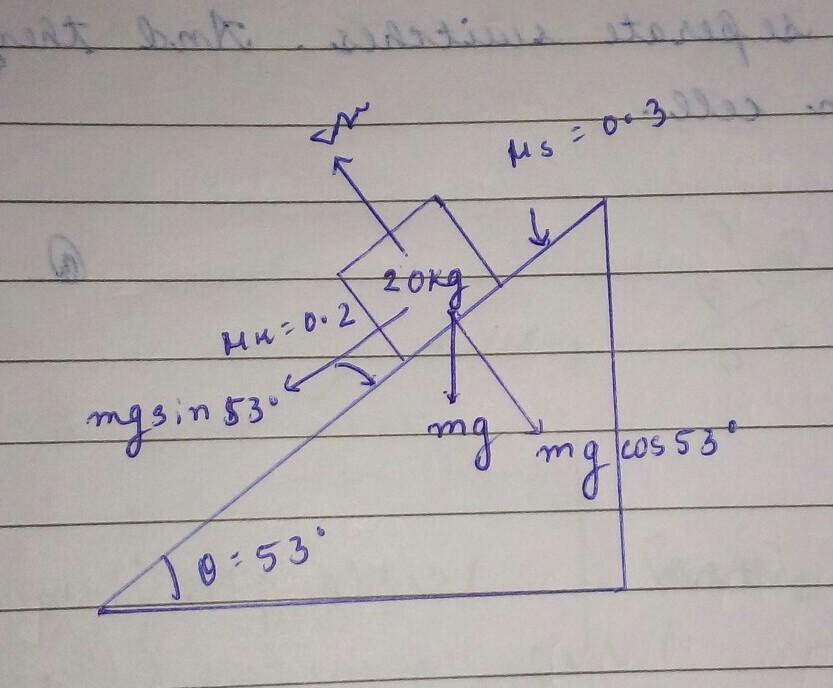 μs = 0.3
20kg
μk = 0.2
mg sin 53°
mg
mg cos 53°
θ = 53°